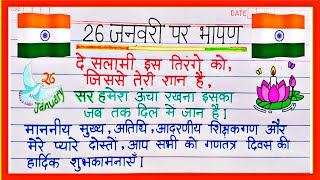 DATE
26 जनवरी पर भाषण
दे सलामी इस तिरंगे को,
जिससे तेरी शान है,
सर हमेशा ऊंचा रखना इसका
जब तक दिल में जान है।
26
January
माननीय मुख्य, अतिथि, आदरणीय शिक्षकगण और
मेरे प्यारे दोस्तो, आप सभी को गणतत्र दिवस की
हार्दिक शुभकामनाएँ।